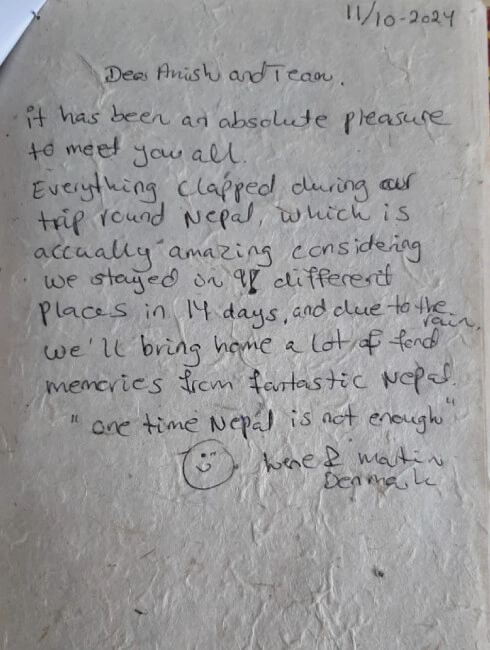 11/10-2024
Dear Anish and Team.
it has been an absolute pleasure
to meet you all.
Everything clapped during our
trip round Nepal, which is
accually amazing considering
we stayed in different
places in 14 days, and due to the
rain,
we'll bring home a lot of fond
memories from fantastic Nepal.
"one time Nepal is not enough"
& Martin
Denmark